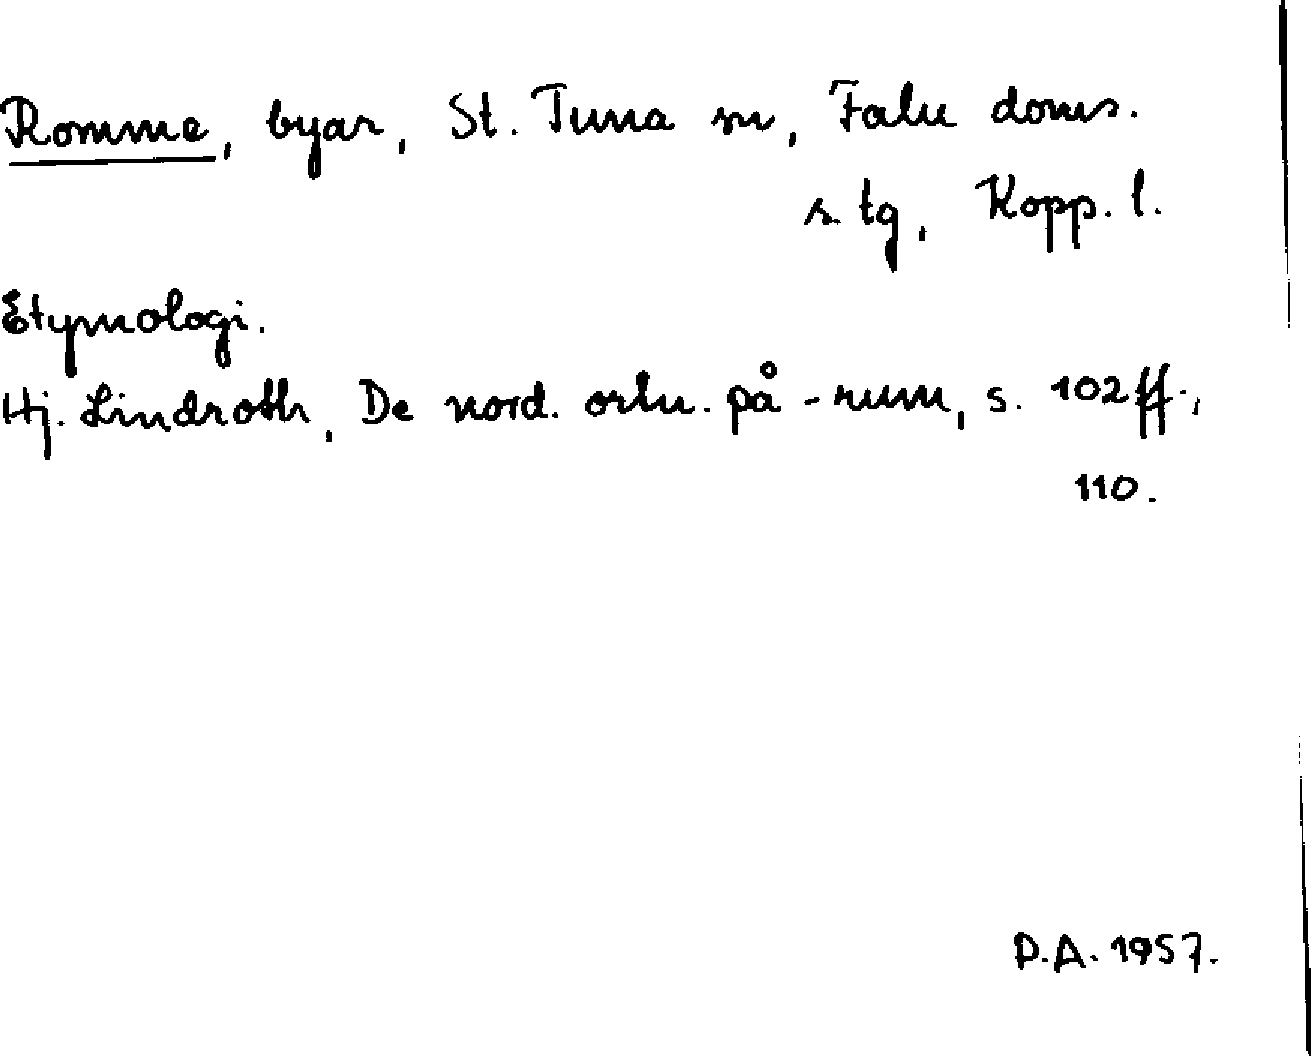 Romme, byar, St. Tuna sn, Falu doms.
s. tg, Kopp. l.
Etymologi.
Hj. Lindroth, De nord. ortn. på -rum, s. 102 ff.,
110.
P.A. 1957.